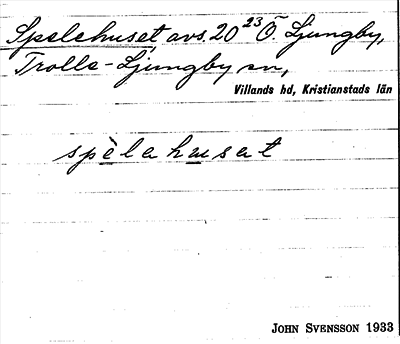 Spelehuset, avs. 20²³ Ö. Ljungby,
Trolle-Ljungby sn,
Villands hd, Kristianstads län
spèlahusat
JOHN SVENSSON 1933